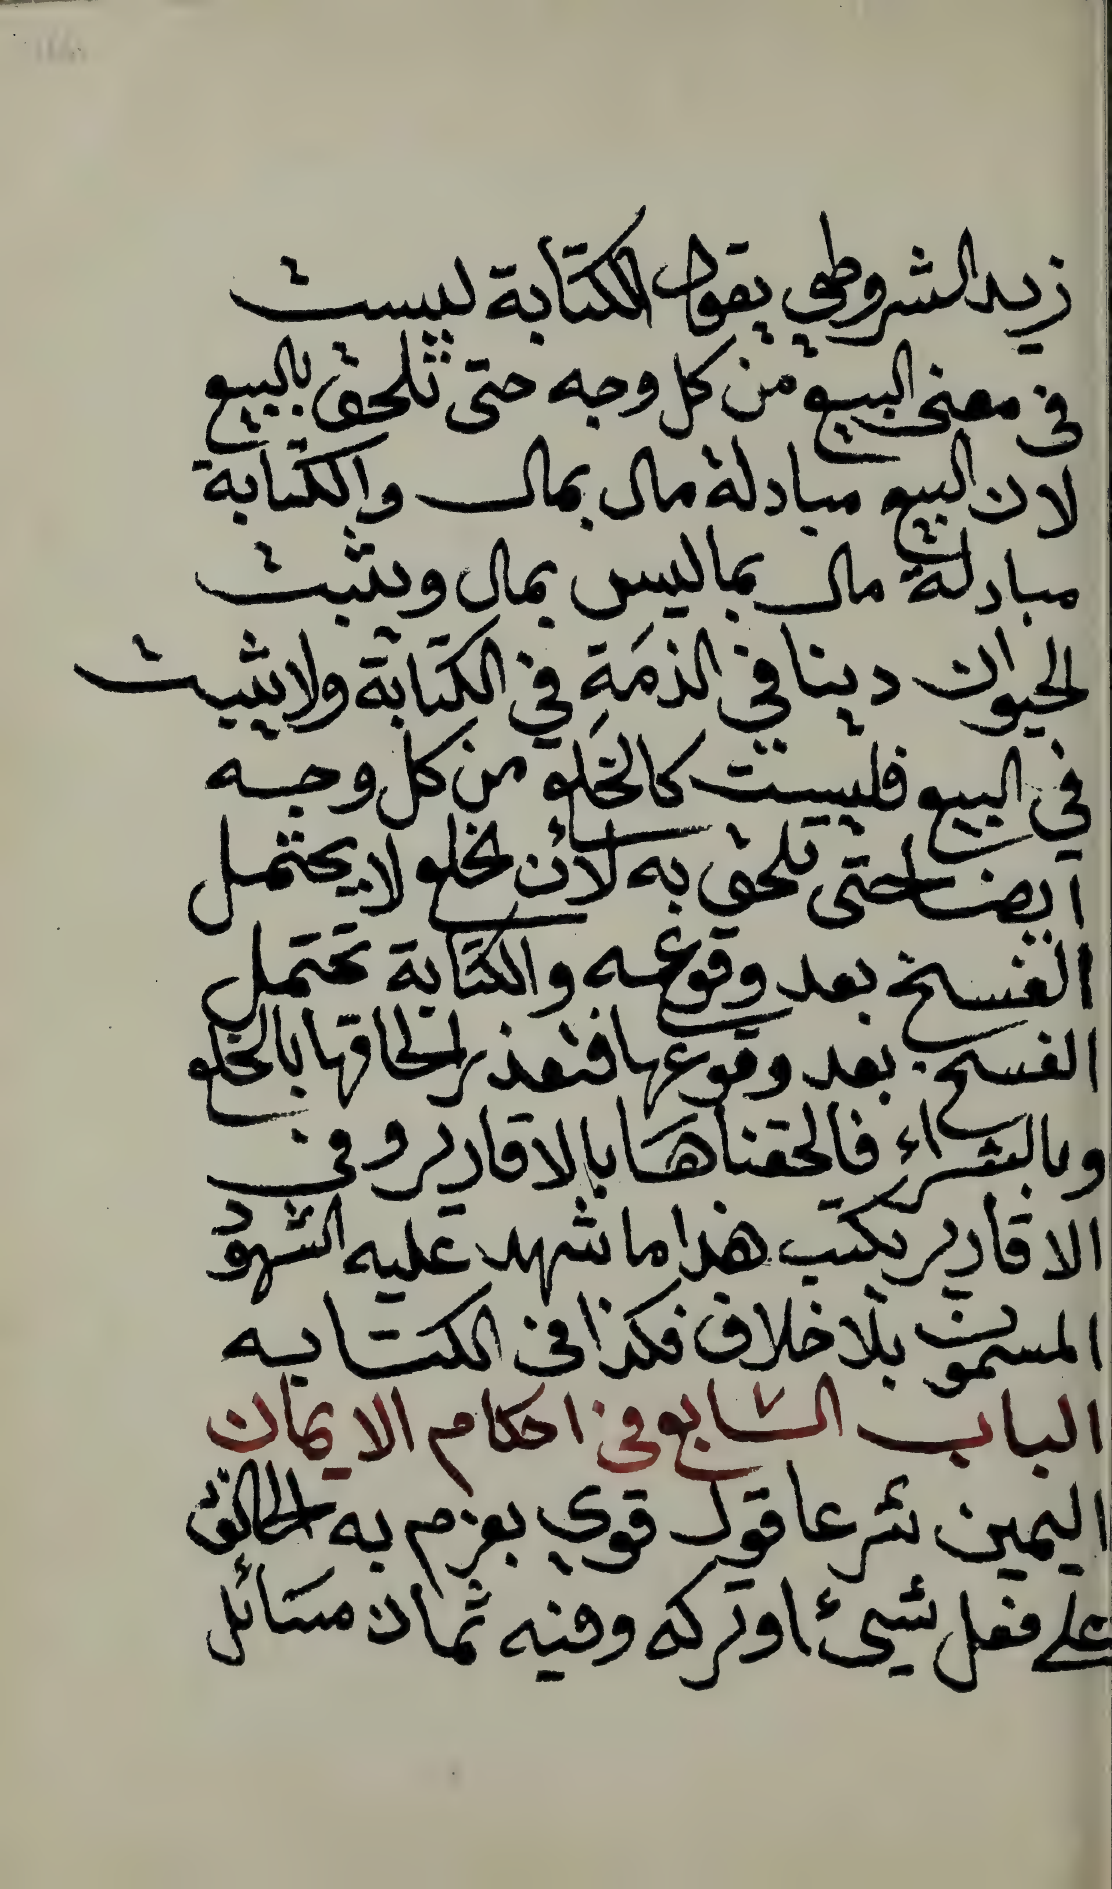 زيد الشروطي يقول الكتابة ليست
في معنى البيع من كل وجه حتى تلحق بالبيع
لان البيع مبادلة مال بمال والكتابة
مبادلة مال بما ليس بمال ويثبت
الحيوان دينا في الذمة في الكتابة ولا يثبت
في البيع فليست كالخلع من كل وجه
ايضا حتى تلحق به لان الخلع لا يحتمل
الفسخ بعد وقوعه والكتابة تحتمل
الفسخ بعد وقوعها فتعذر الحاقها بالخلع
وبالشراء فالحقناها بالاقارير وفي
الاقارير يكتب هذا ما شهد عليه الشهود
المسمون بلا خلاف فكذا في الكتابه
الباب السابع في احكام الايمان
اليمين شرعا قول قوي يعزم به الحالف
على فعل شيئ او تركه وفيه ثمان مسائل